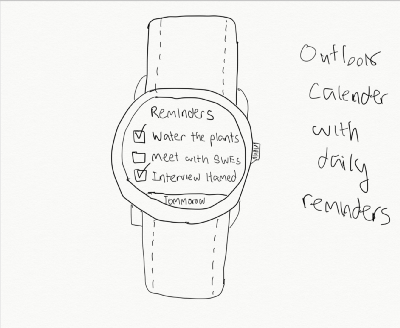 Reminders
Water the plants
Meet with SWEs
Interview Hamed
Tommorow
Outlook
Calender
with
daily
reminders